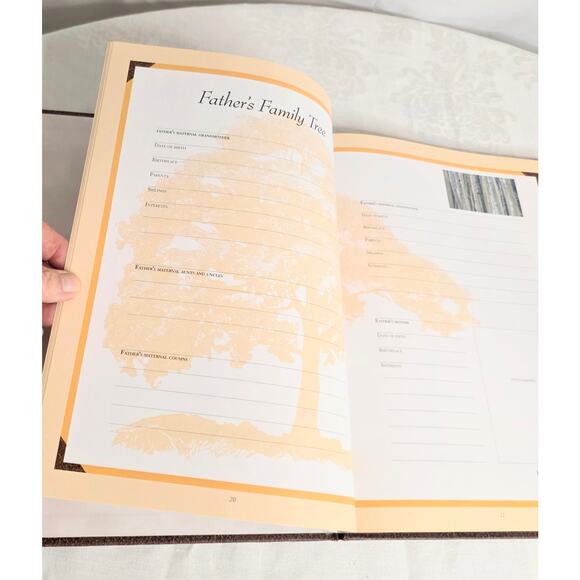 Father's Family Tree
Father's maternal grandmother
Date of birth
Birthplace
Parents
Siblings
Interests
Father's maternal aunts and uncles
Father's maternal cousins
20
Date of birth
Birthplace
Parents
Siblings
Interests
Father's mother
Date of birth
Birthplace
Interests